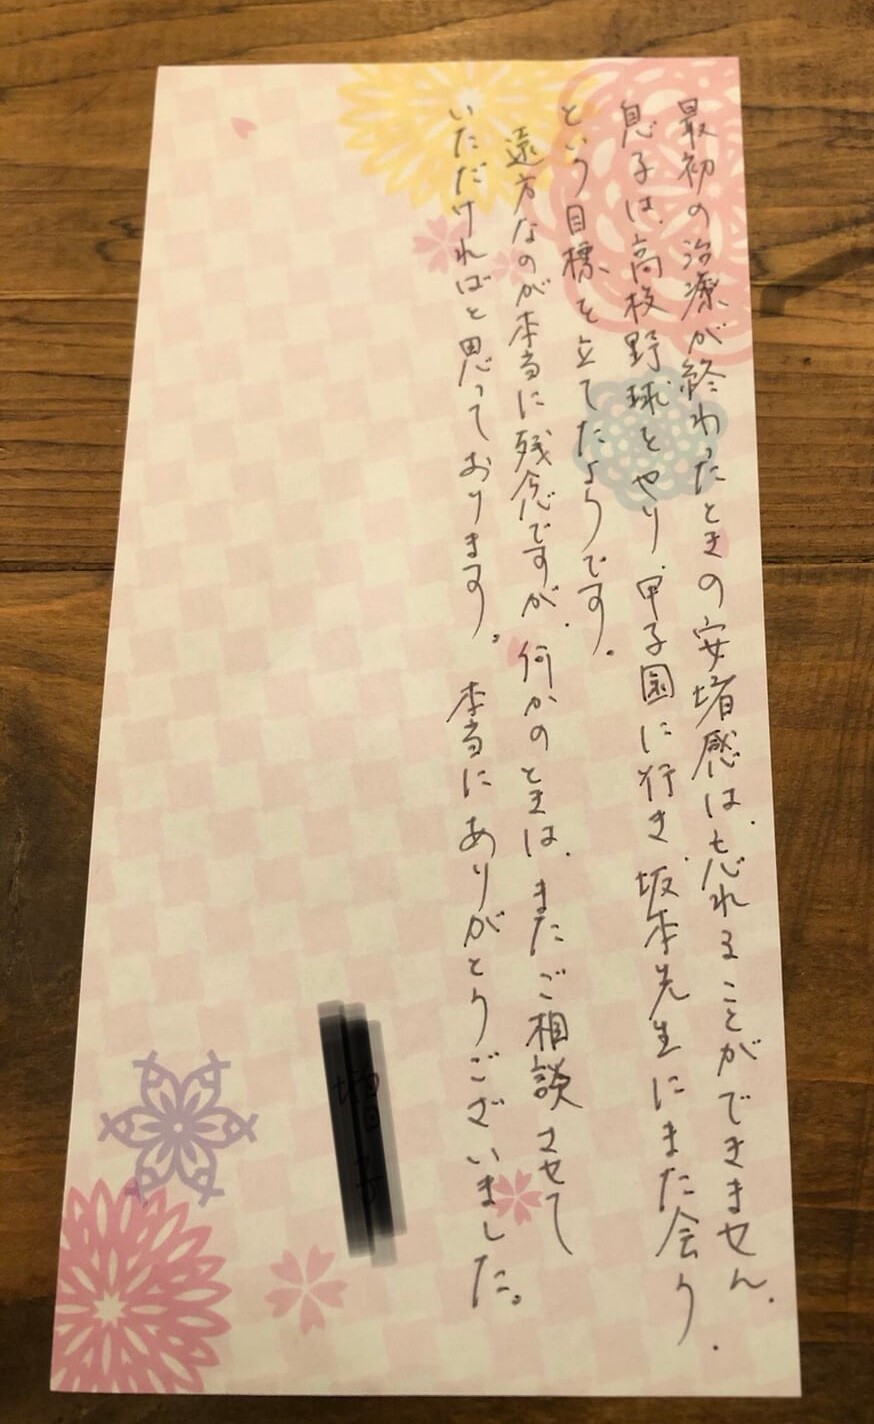 最初の治療が終わったときの安堵感は、忘れることができません。
息子は、高校野球をやり、甲子園に行き、坂本先生にまた会う、
という目標を立てたようです。
遠方なのが本当に残念ですが、何かのときは、またご相談させて
いただければと思っております。本当にありがとうございました。